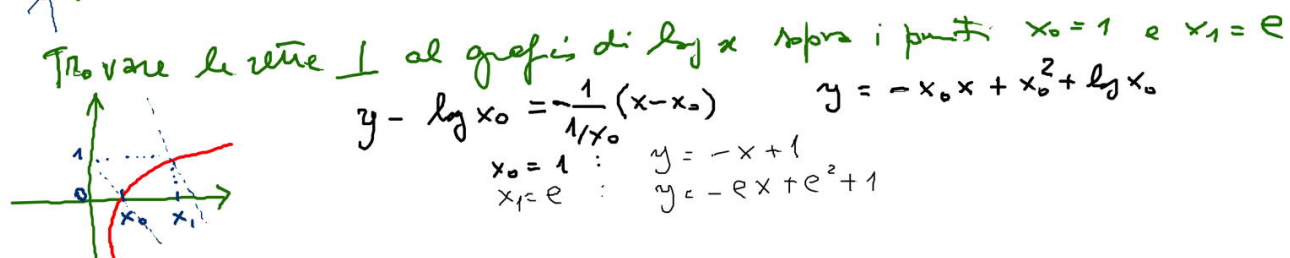 Trovare le rette ⊥ al grafico di log x sopra i punti x₀ = 1 e x₁ = e
y - log x₀ = - 1/(1/x₀) (x - x₀) y = - x₀x + x₀² + log x₀
x₀ = 1 : y = - x + 1
x₁ = e : y = - ex + e² + 1
1
0
x₀ x₁